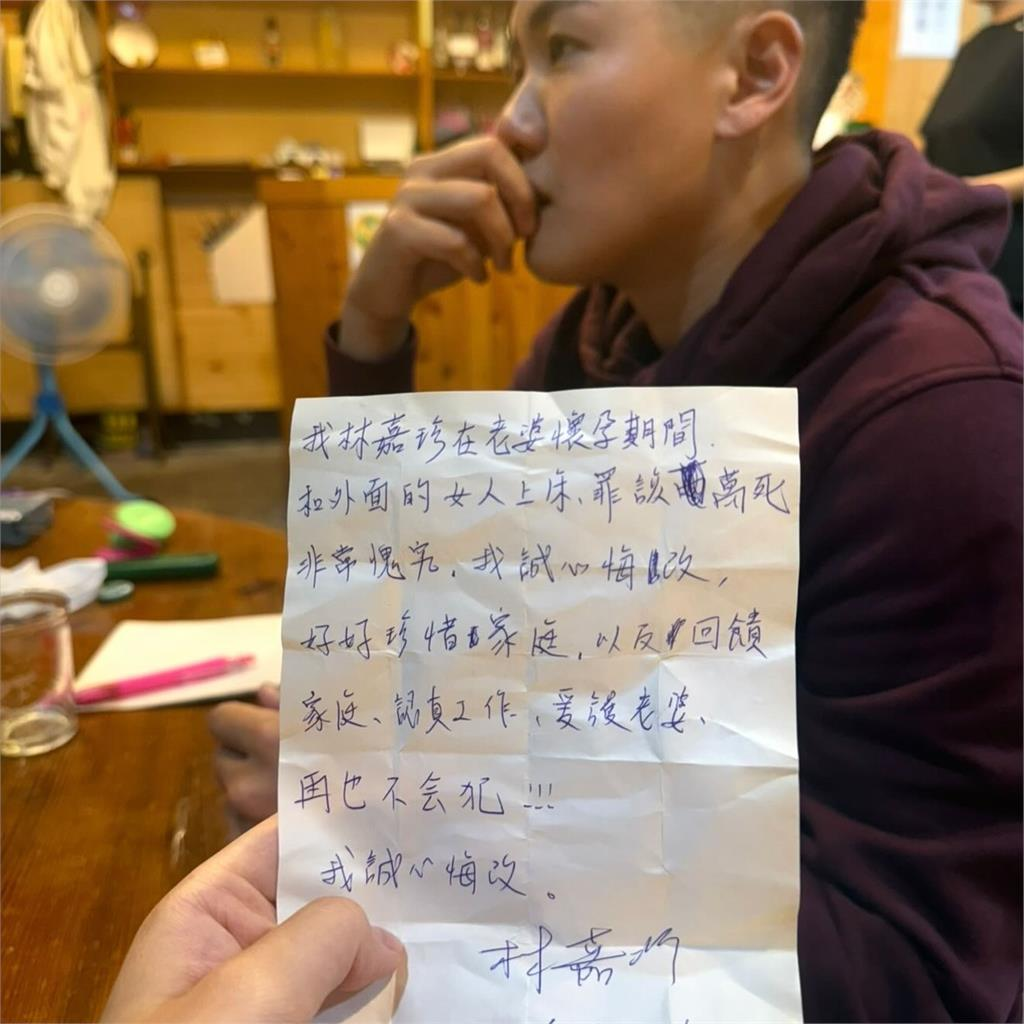 我林嘉珍在老婆懷孕期間.
和外面的女人上床、罪該萬死
非常愧疚.我誠心悔改,
好好珍惜家庭,以及回饋
家庭、認真工作、爱護老婆、
再也不会犯!!!
我誠心悔改。
林嘉珍